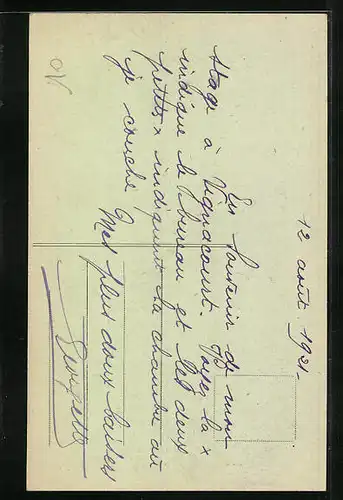 12 août 1921-
En souvenir de mon
stage à Vignacourt. la x
indique le bureau et les deux
petits x indiquent la chambre où
je couche Mes plus doux baisers
Georgette